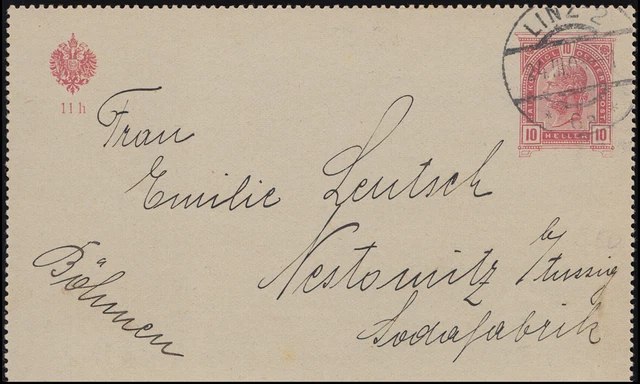 11 h
LINZ 2
10
10 HELLER 10
Frau
Emilie Leutsch
Nestomitz b/Aussig
Sodafabrik
Böhmen